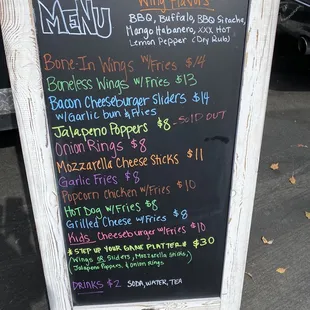 MENU
Wing Flavors
BBQ, Buffalo, BBQ Sriracha,
Mango Habanero, XXX Hot
Lemon Pepper (Dry Rub)
Bone-In Wings w/Fries $14
Boneless Wings w/Fries $13
Bacon Cheeseburger Sliders $14
w/Garlic bun & Fries
Jalapeno Poppers $8 - SOLD OUT
Onion Rings $8
Mozzarella Cheese Sticks $11
Garlic Fries $8
Popcorn Chicken w/Fries $10
Hot Dog w/Fries $8
Grilled Cheese w/Fries $8
Kids Cheeseburger w/Fries $10
Step Up Your Game Platter $30
Wings, Sliders, Mozzarella Sticks,
Jalapeno Poppers, & Onion Rings
DRINKS $2 SODA, WATER, TEA